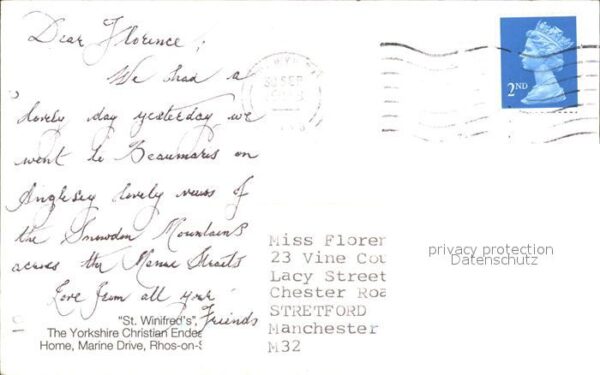 Dear Florence,
We had a
lovely day yesterday we
went to Beaumares on
Anglesey lovely views of
the Snowdon Mountains
across the Menai Straits
Love from all your
Friends
"St. Winifred's",
The Yorkshire Christian Endea
Home, Marine Drive, Rhos-on-S
SEP
2ND
Miss Floren
23 Vine Cou
Lacy Street
Chester Roa
STRETFORD
Manchester
M32
privacy protection
Datenschutz